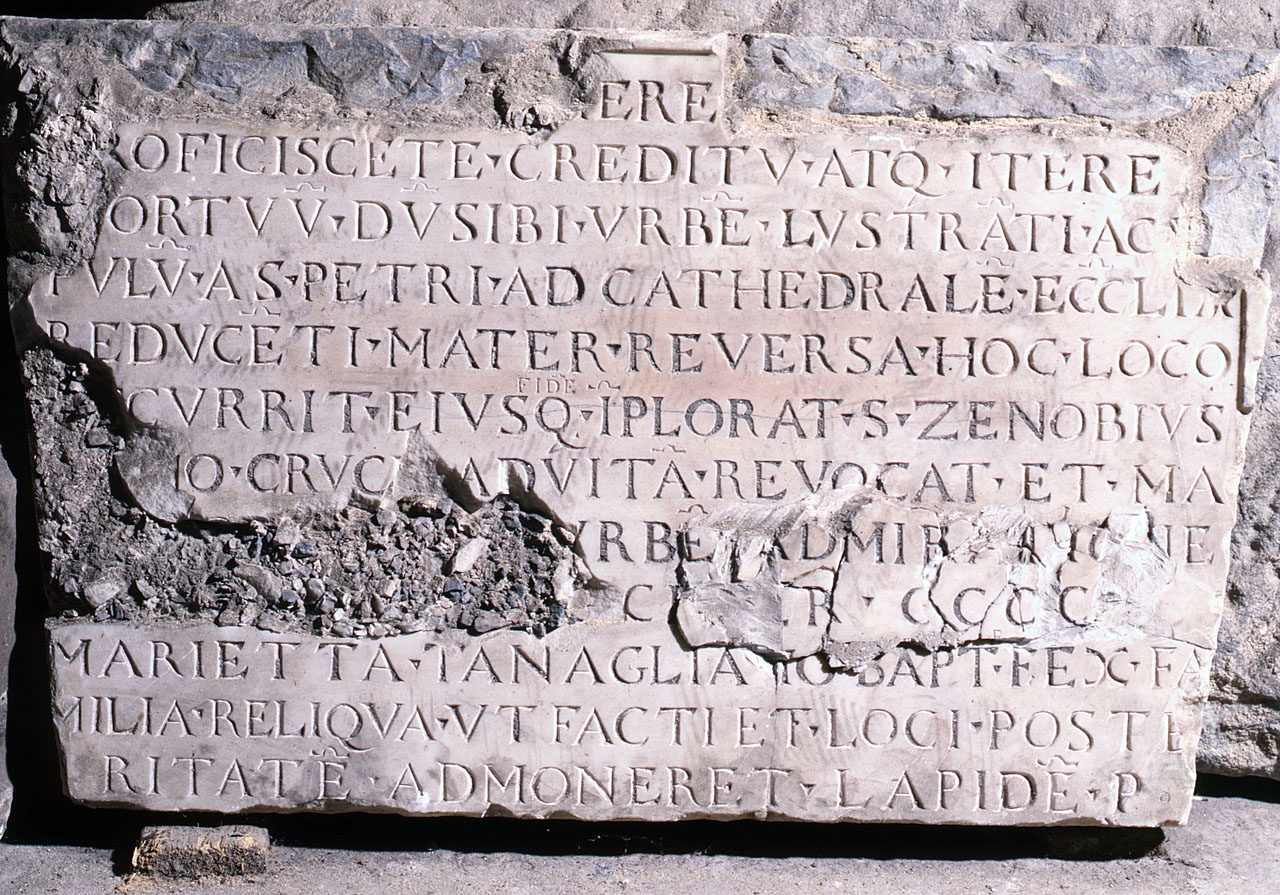 ERE
ROFICISCETE·CREDITV·ATQ·ITERE
ORTVV̄·DVSIBI·VRBĒ·LVSTRĀTI·AC
PVLV̄·A S̄·PETRI·AD CATHEDRALĒ·ECC̄L
REDVCĒTI·MATER·REVERSA·HOC·LOCO
CVRRIT·EIVSQ·FIDE·ĪPLORAT·S·ZENOBIVS
IO·CRVC ADVITĀ·REVOCAT·ET·MA
VRBĒ ADMIR NE
C R·CCCC
MARIETTA·TANAGLIA IO·BAPT·F·EX·FA
MILIA·RELIQVA·VT FACTI ET·LOCI·POSTE
RITATĒ·ADMONERET·LAPIDĒ·P